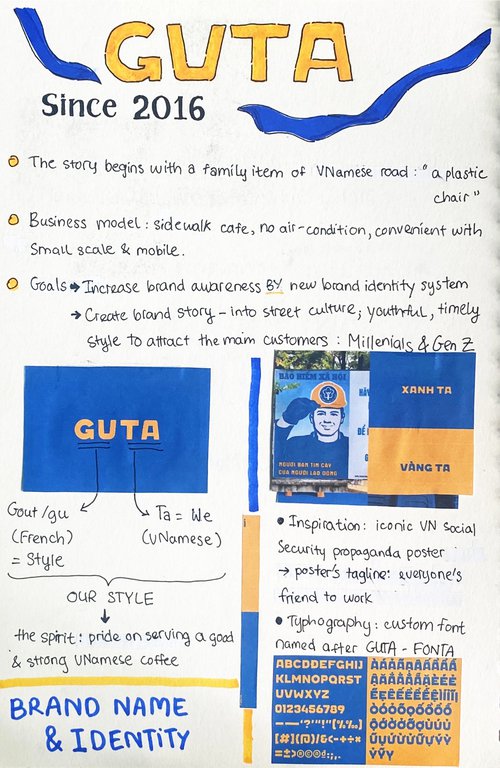 GUTA
Since 2016
The story begins with a family item of VNamese road : "a plastic
chair"
Business model : sidewalk cafe, no air-condition, convenient with
small scale & mobile.
Goals → Increase brand awareness BY new brand identity system
→ Create brand story - into street culture, youthful, timely
style to attract the main customers : Millenials & Gen Z
GUTA
BẢO HIỂM XÃ HỘI
NGƯỜI BẠN TIN CẬY
CỦA NGƯỜI LAO ĐỘNG
XANH TA
VÀNG TA
Gout/gu
(French)
= Style
Ta = We
(VNamese)
OUR STYLE
the spirit: pride on serving a good
& strong VNamese coffee
BRAND NAME
& IDENTITY
Inspiration: iconic VN social
Security propaganda poster
→ poster's tagline: everyone's
friend to work
Typhography: custom font
named after GUTA - FONTA
ABCDĐEFGHIJ
KLMNOPQRST
UVWXYZ
0123456789